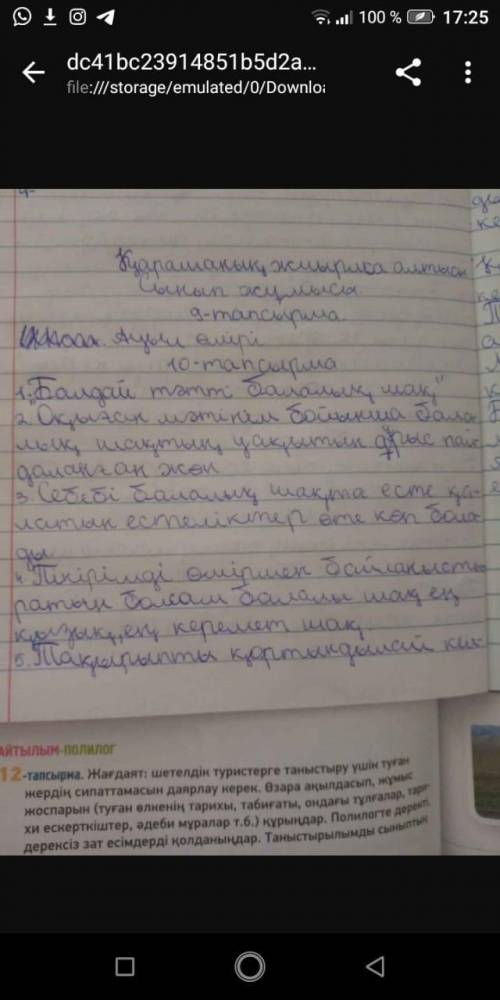 100 % 17:25
dc41bc23914851b5d2a...
file:///storage/emulated/0/Downloa
Қарашаның жиырма алтысы
Сынып жұмысы.
9-тапсырма.
Ауыл өмірі
10-тапсырма
1. "Балдай тәтті балалық шақ"
2. Оқыған мәтінім бойынша бала-
лық шақтың уақытын дұрыс пай
даланған жөн
3. Себебі балалық шақта есте қа-
латын естеліктер өте көп бола-
ды
4. Пікірімді өмірмен байланысты
ратын болсам балалы шақ ең
қызық, ең керемет шақ
5. Тақырыпты қортындылай
АЙТЫЛЫМ-ПОЛИЛОГ
12-тапсырма. Жағдаят: шетелдік туристерге таныстыру үшін туған
жердің сипаттамасын даярлау керек. Өзара ақылдасып, жұмыс
жоспарын (туған өлкенің тарихы, табиғаты, ондағы тұлғалар, тари-
хи ескерткіштер, әдеби мұралар т.б.) құрыңдар. Полилогте деректі,
дерексіз зат есімдерді қолданыңдар. Таныстырылымды сыныптың